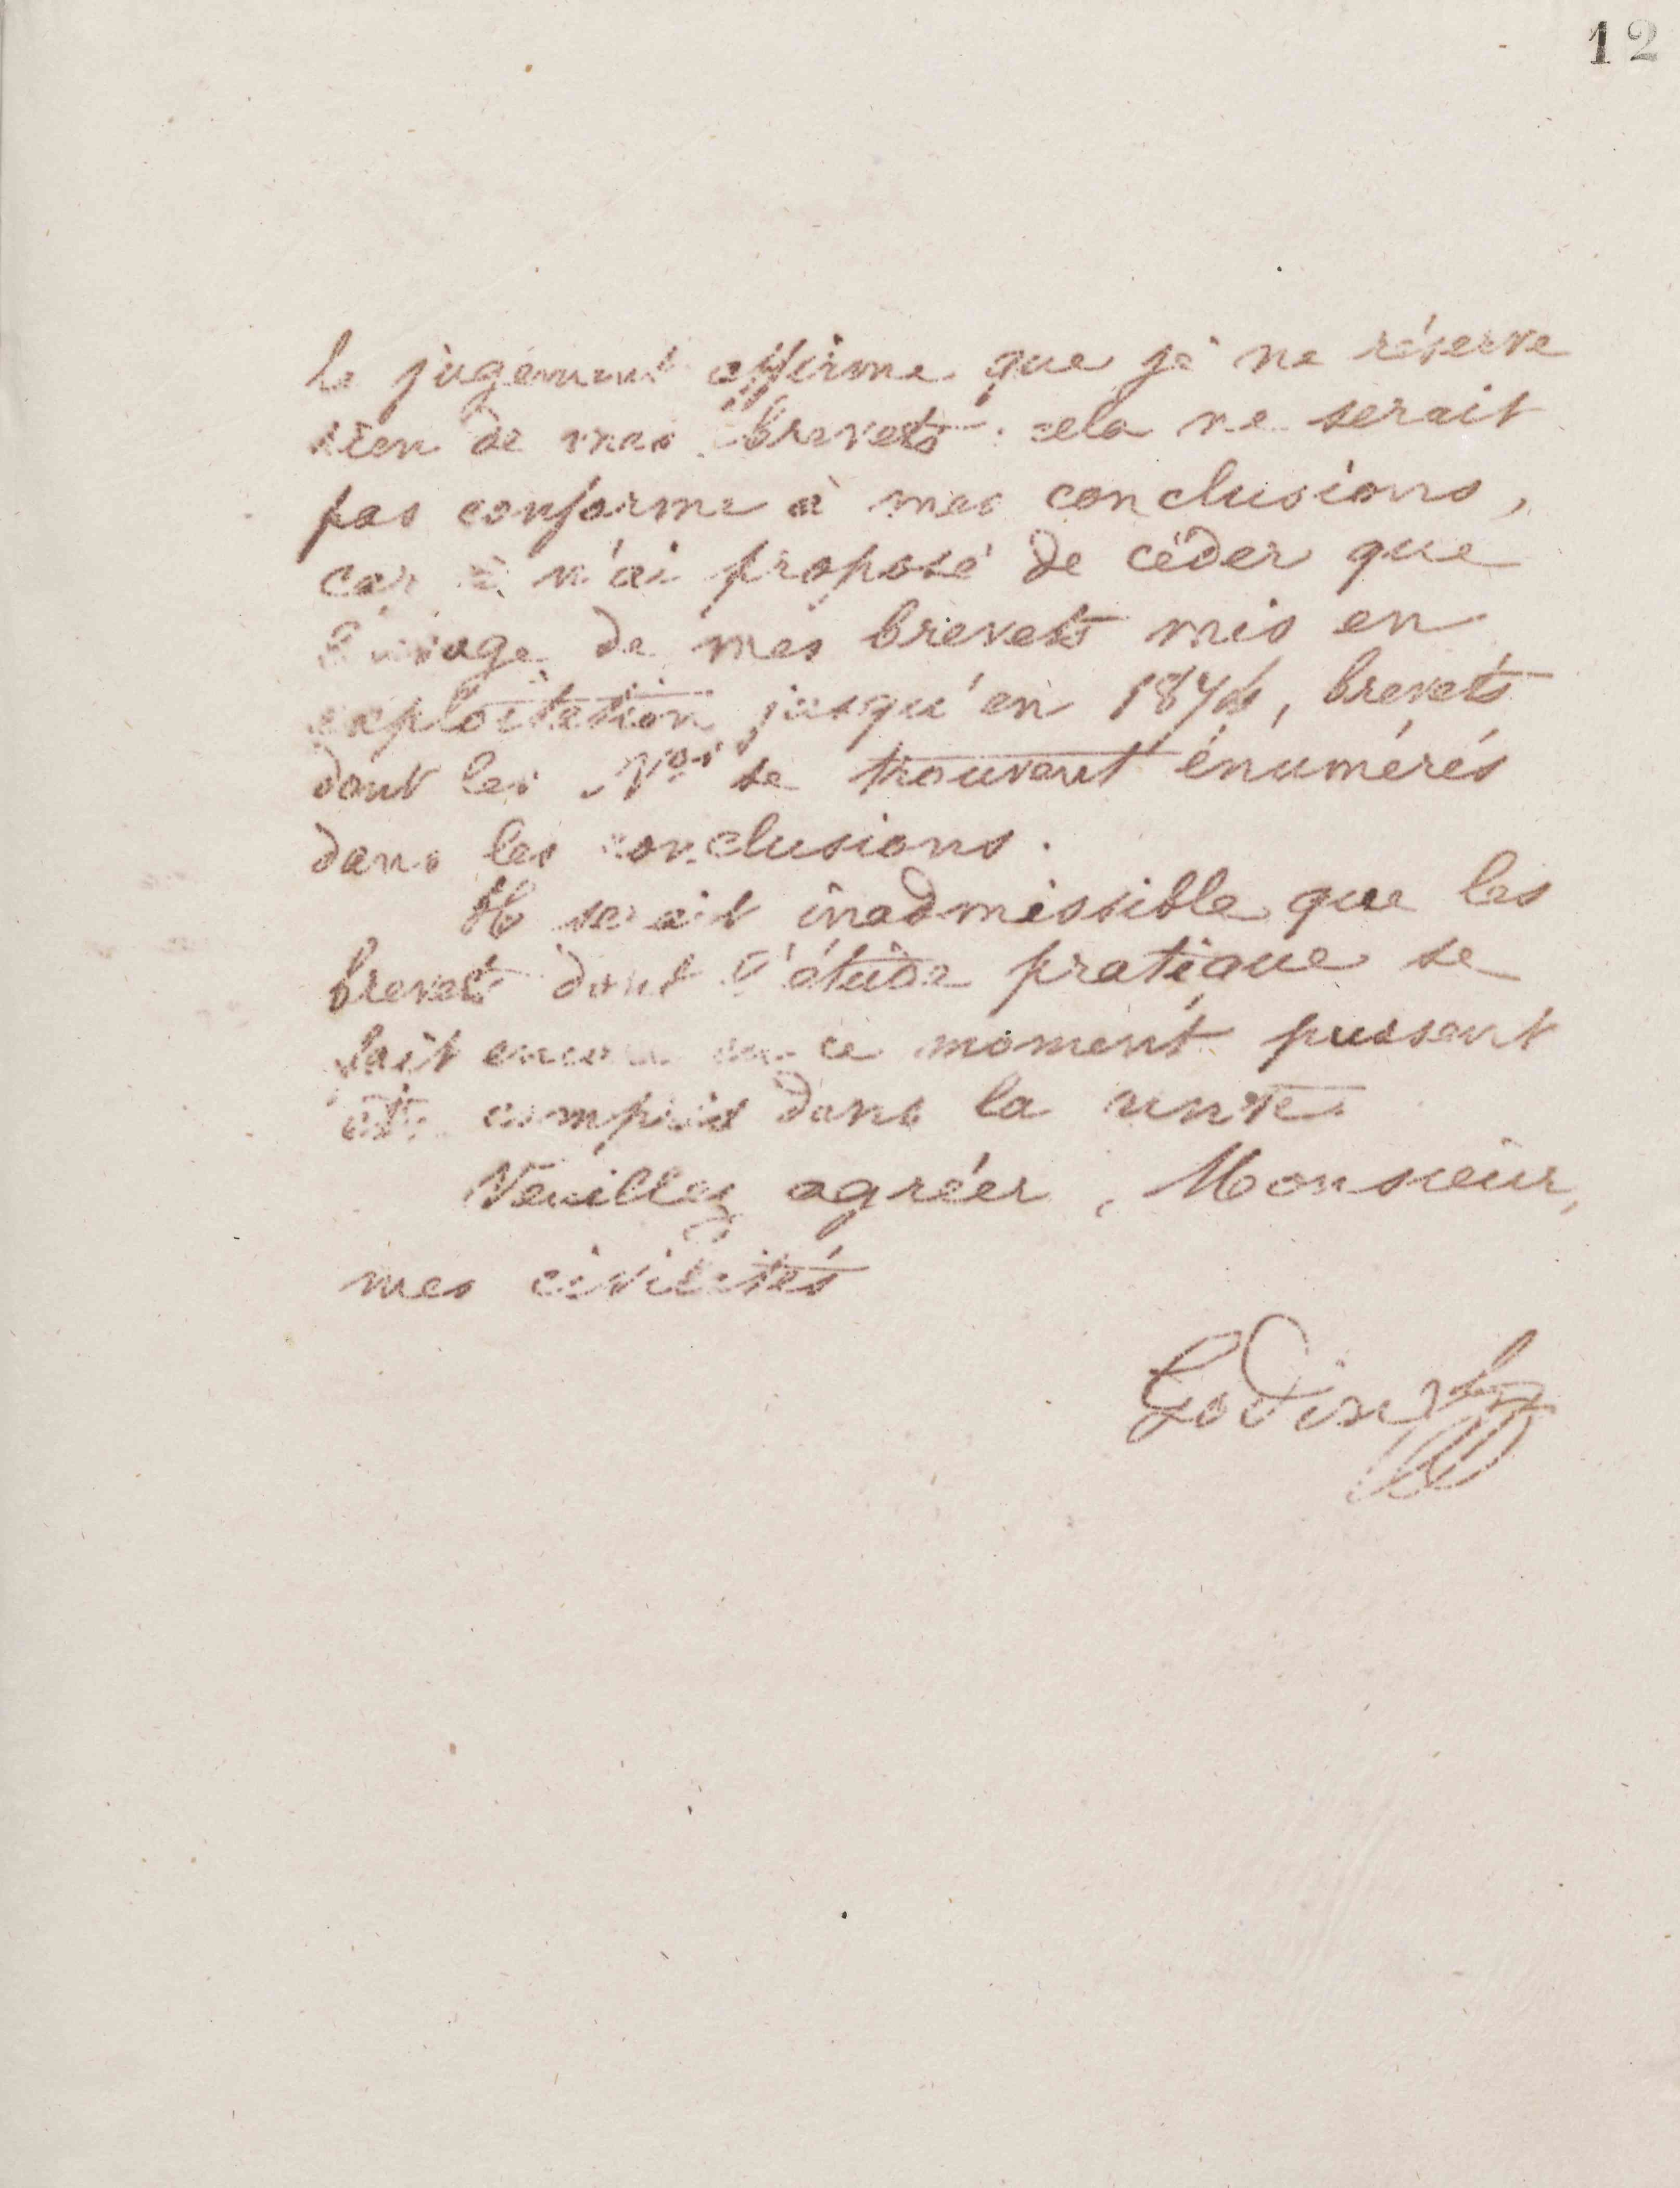 12
Le jugement affirme que je ne réserve
rien de mes brevets. cela ne serait
pas conforme à mes conclusions,
car je n'ai proposé de céder que
l'usage de mes brevets mis en
exploitation jusqu'en 1874, brevets
dont les Nos se trouvent énumérés
dans les conclusions.
Il serait inadmissible que les
brevets dont l'étude pratique se
fait encore en ce moment pussent
être compris dans la vente.
Veuillez agréer, Monsieur,
mes civilités
Godin